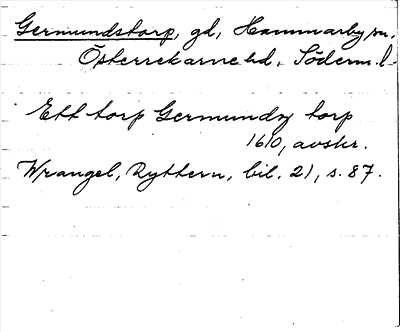 Germundstorp, gd, Hammarby sn,
Österrekarne hd, Söderm. l.
Ett torp Germundz torp
1610, avskr.
Wrangel, Ryttern, bil. 21, s. 87.